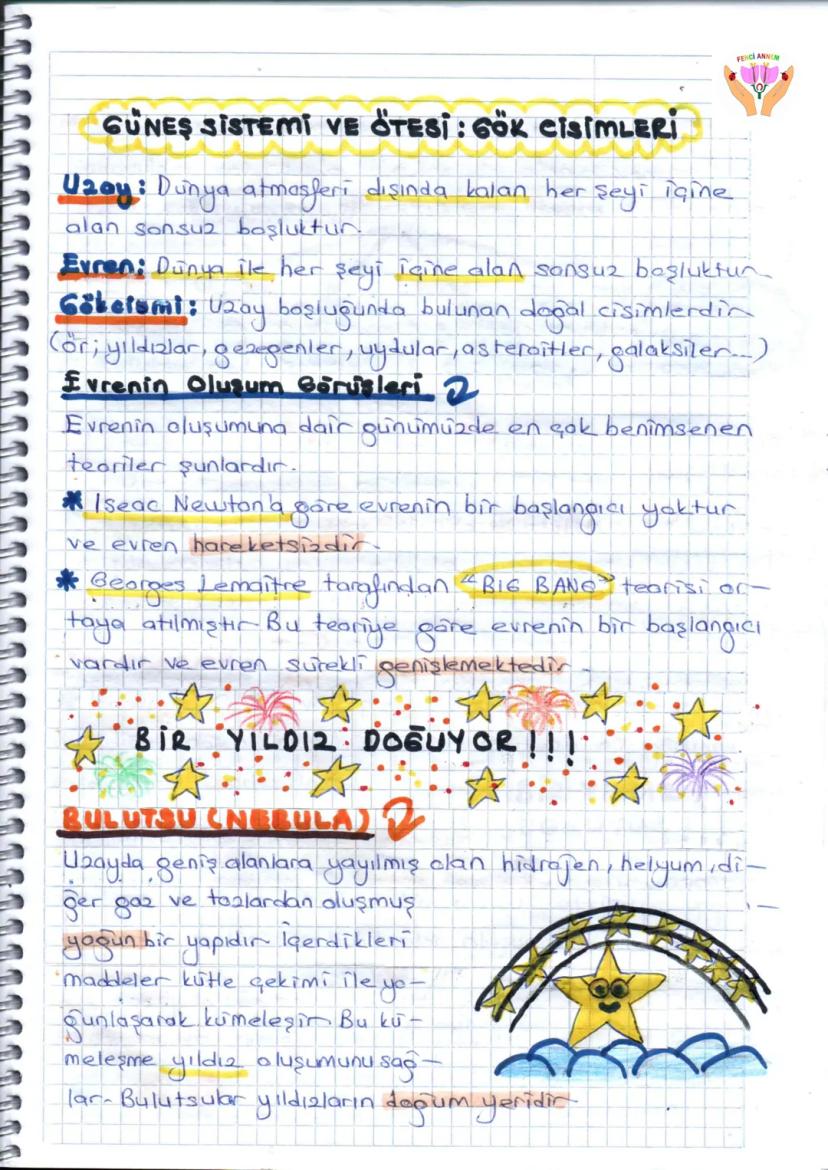 FENCİ ANNEM
GÜNEŞ SİSTEMİ VE ÖTESİ : GÖK CİSİMLERİ
Uzay : Dünya atmosferi dışında kalan her şeyi içine
alan sonsuz boşluktur.
Evren: Dünya ile her şeyi içine alan sonsuz boşluktur.
Gökcismi : Uzay boşluğunda bulunan doğal cisimlerdir
(ör; yıldızlar, gezegenler, uydular, asteroitler, galaksiler...)
Evrenin Oluşum Görüşleri
Evrenin oluşumuna dair günümüzde en çok benimsenen
teoriler şunlardır.
* Iseac Newton'a göre evrenin bir başlangıcı yoktur
ve evren hareketsizdir.
* Georges Lemaitre tarafından "BIG BANG" teorisi or-
taya atılmıştır. Bu teoriye göre evrenin bir başlangıcı
vardır ve evren sürekli genişlemektedir.
BİR YILDIZ DOĞUYOR !!!
BULUTSU (NEBULA)
Uzayda geniş alanlara yayılmış olan hidrojen, helyum, di-
ğer gaz ve tozlardan oluşmuş
yoğun bir yapıdır. İçerdikleri
maddeler kütle çekimi ile yo-
ğunlaşarak kümeleşir. Bu kü-
meleşme yıldız oluşumunu sağ-
lar. Bulutsular yıldızların doğum yeridir